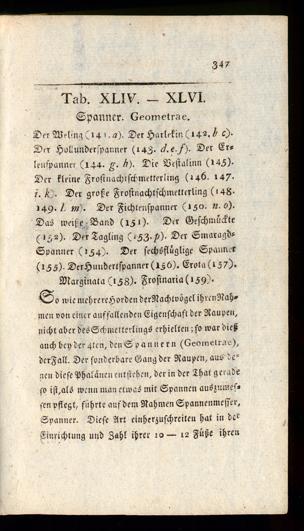 347
Tab. XLIV. — XLVI.
Spanner. Geometrae.
Der Weling (141. a). Der Harlekin (142. b c).
Der Hollunderspanner (143. d. e. f). Der Er-
lenspanner (144. g. h). Die Vestalinn (145).
Der kleine Frostnachtschmetterling (146. 147.
i. k). Der große Frostnachtschmetterling (148.
149. l m). Der Fichtenspanner (150. n. o).
Das weiße Band (151). Der Geschmückte
(152). Der Tagling (153. p). Der Smaragd-
Spanner (154). Der sechsflüglige Spanner
(155). Der Hundertspanner (156). Erota (157).
Marginata (158). Frosinaria (159).
So wie mehrere Horden der Nachtvögel ihren Nah-
men von einer auffallenden Eigenschaft der Raupen,
nicht aber des Schmetterlings erhielten; so war dieß
auch bey der 4ten, den Spannern (Geometrae),
der Fall. Der sonderbare Gang der Raupen, aus de-
nen diese Phalänen entstehen, der in der That gerade
so ist, als wenn man etwas mit Spannen auszumes-
sen pflegt, führte auf dem Nahmen Spannenmesser,
Spanner. Diese Art einherzuschreiten hat in der
Einrichtung und Zahl ihrer 10 — 12 Füße ihren